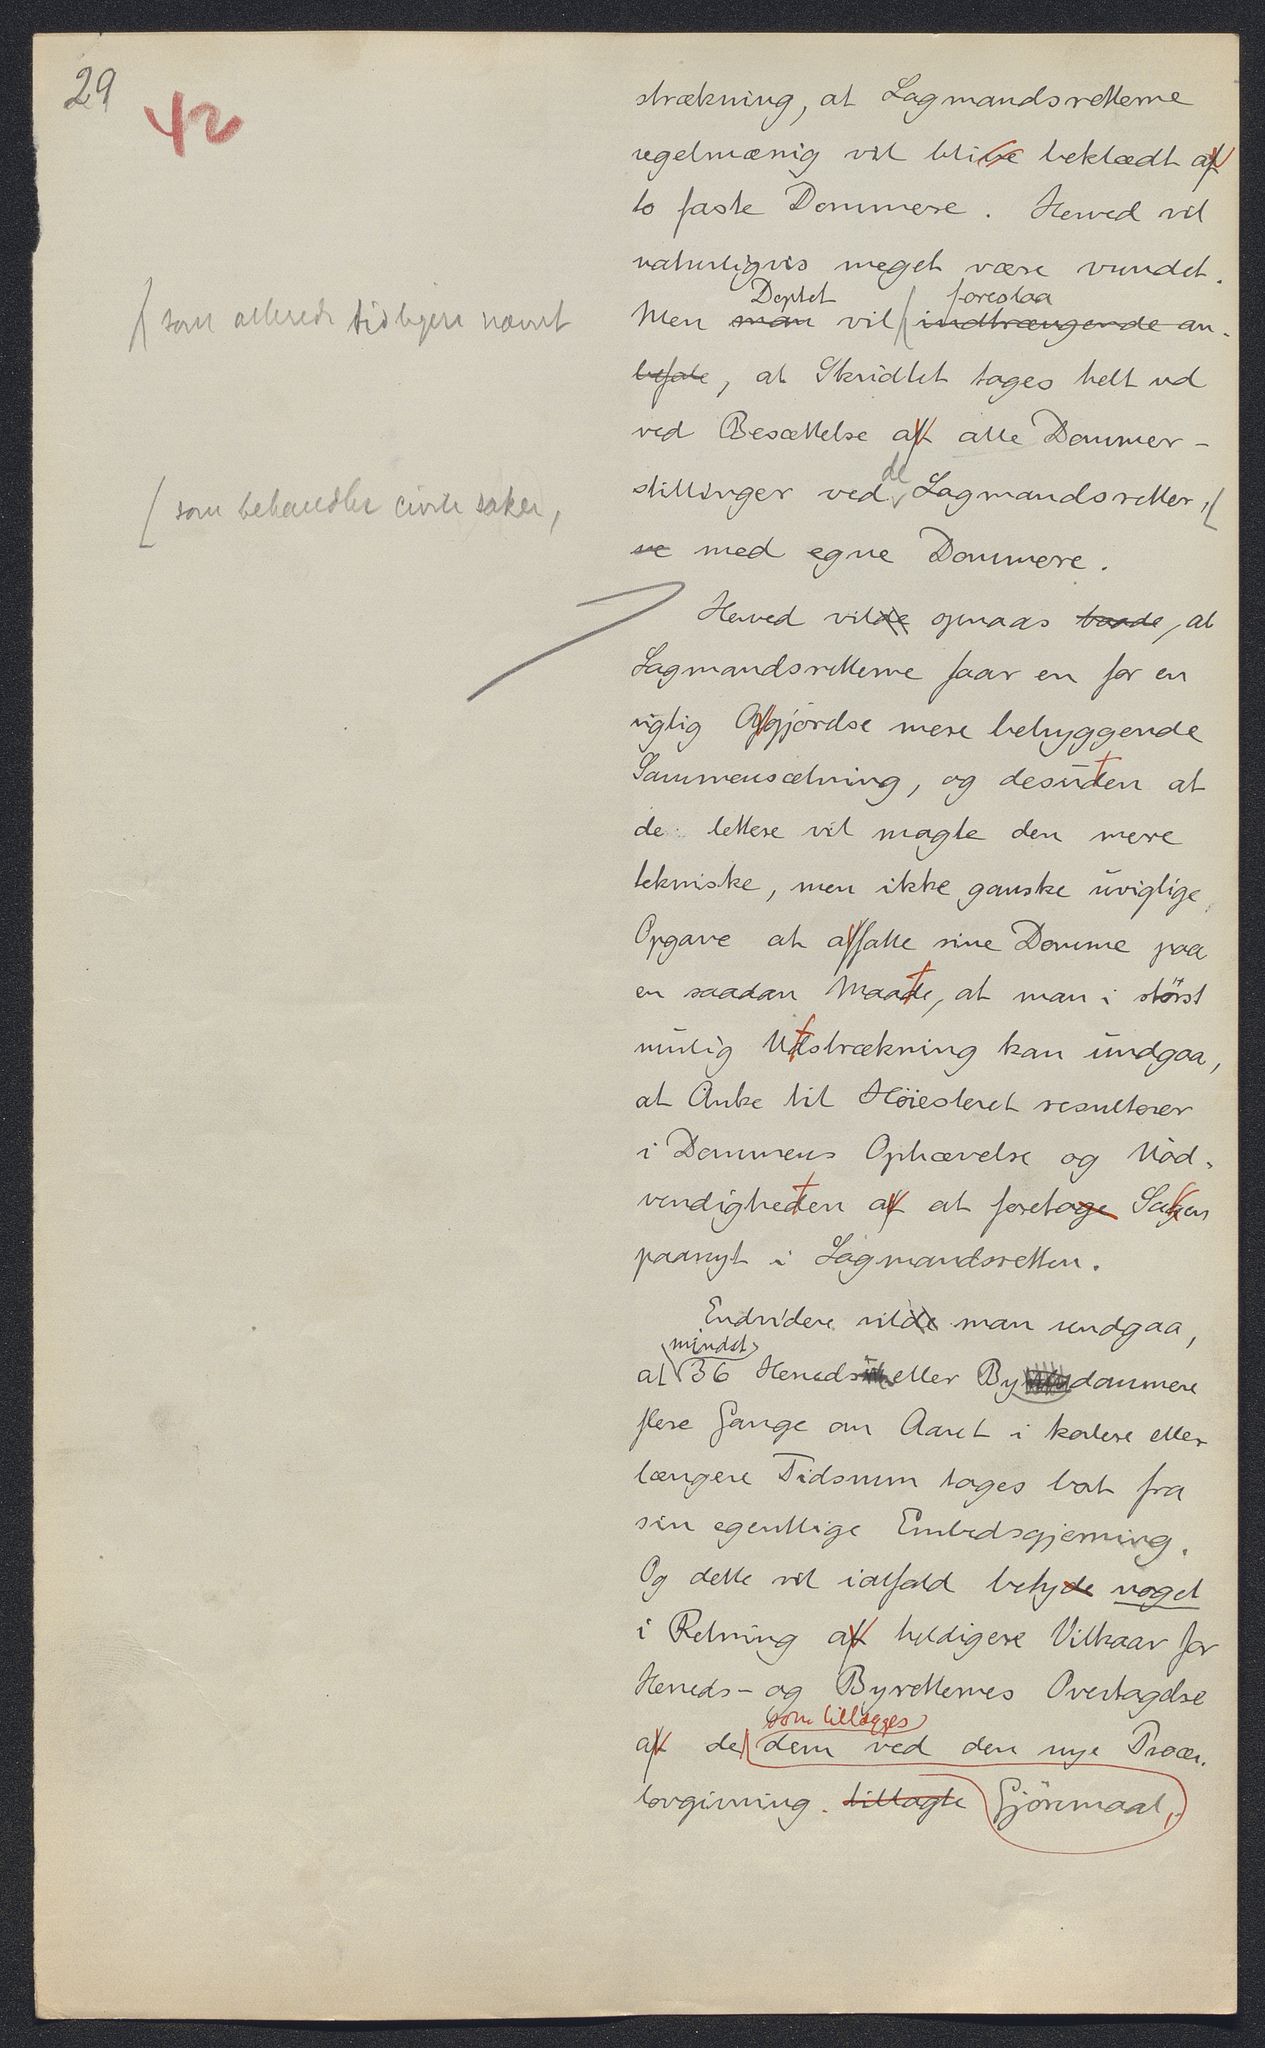 29
42
strækning, at Lagmandsretterne
regelmæssig vil blive beklædt af
to faste Dommere. Herved vil
naturligvis meget være vundet.
Deptet foreslaa
( som allerede tidligere nævnt
Men man vil ( indtrængende an-
befale, at Skridtet tages helt ud
ved Besættelse af alle Dommer-
de
stillinger ved Lagmandsretter, (
( som behandler civile saker,
ne med egne Dommere.
Herved vilde opnaaes baade, at
Lagmandsretterne faar en for en
rigtig Afgjørelse mere betryggende
Sammensætning, og desuden at
de lettere vil magte den mere
tekniske, men ikke ganske uvigtige
Opgave at affatte sine Domme paa
en saadan Maade, at man i størst
mulig Udstrækning kan undgaa,
at Anke til Høiesteret resulterer
i Dommens Ophævelse og Nød-
vendigheden af at foretage Sagen
paanyt i Lagmandsretten.
Endvidere vilde man undgaa,
mindst
at 36 Herreds eller By dommere
flere Gange om Aaret i kortere eller
længere Tidsrum tages bort fra
sin egentlige Embedsgjerning.
Og dette vil ialfald betyde noget
i Retning af heldigere Vilkaar for
Herreds- og Byretternes Overtagelse
som tillægges
af de dem ved den nye Proces-
lovgivning tillagte Gjøremaal.